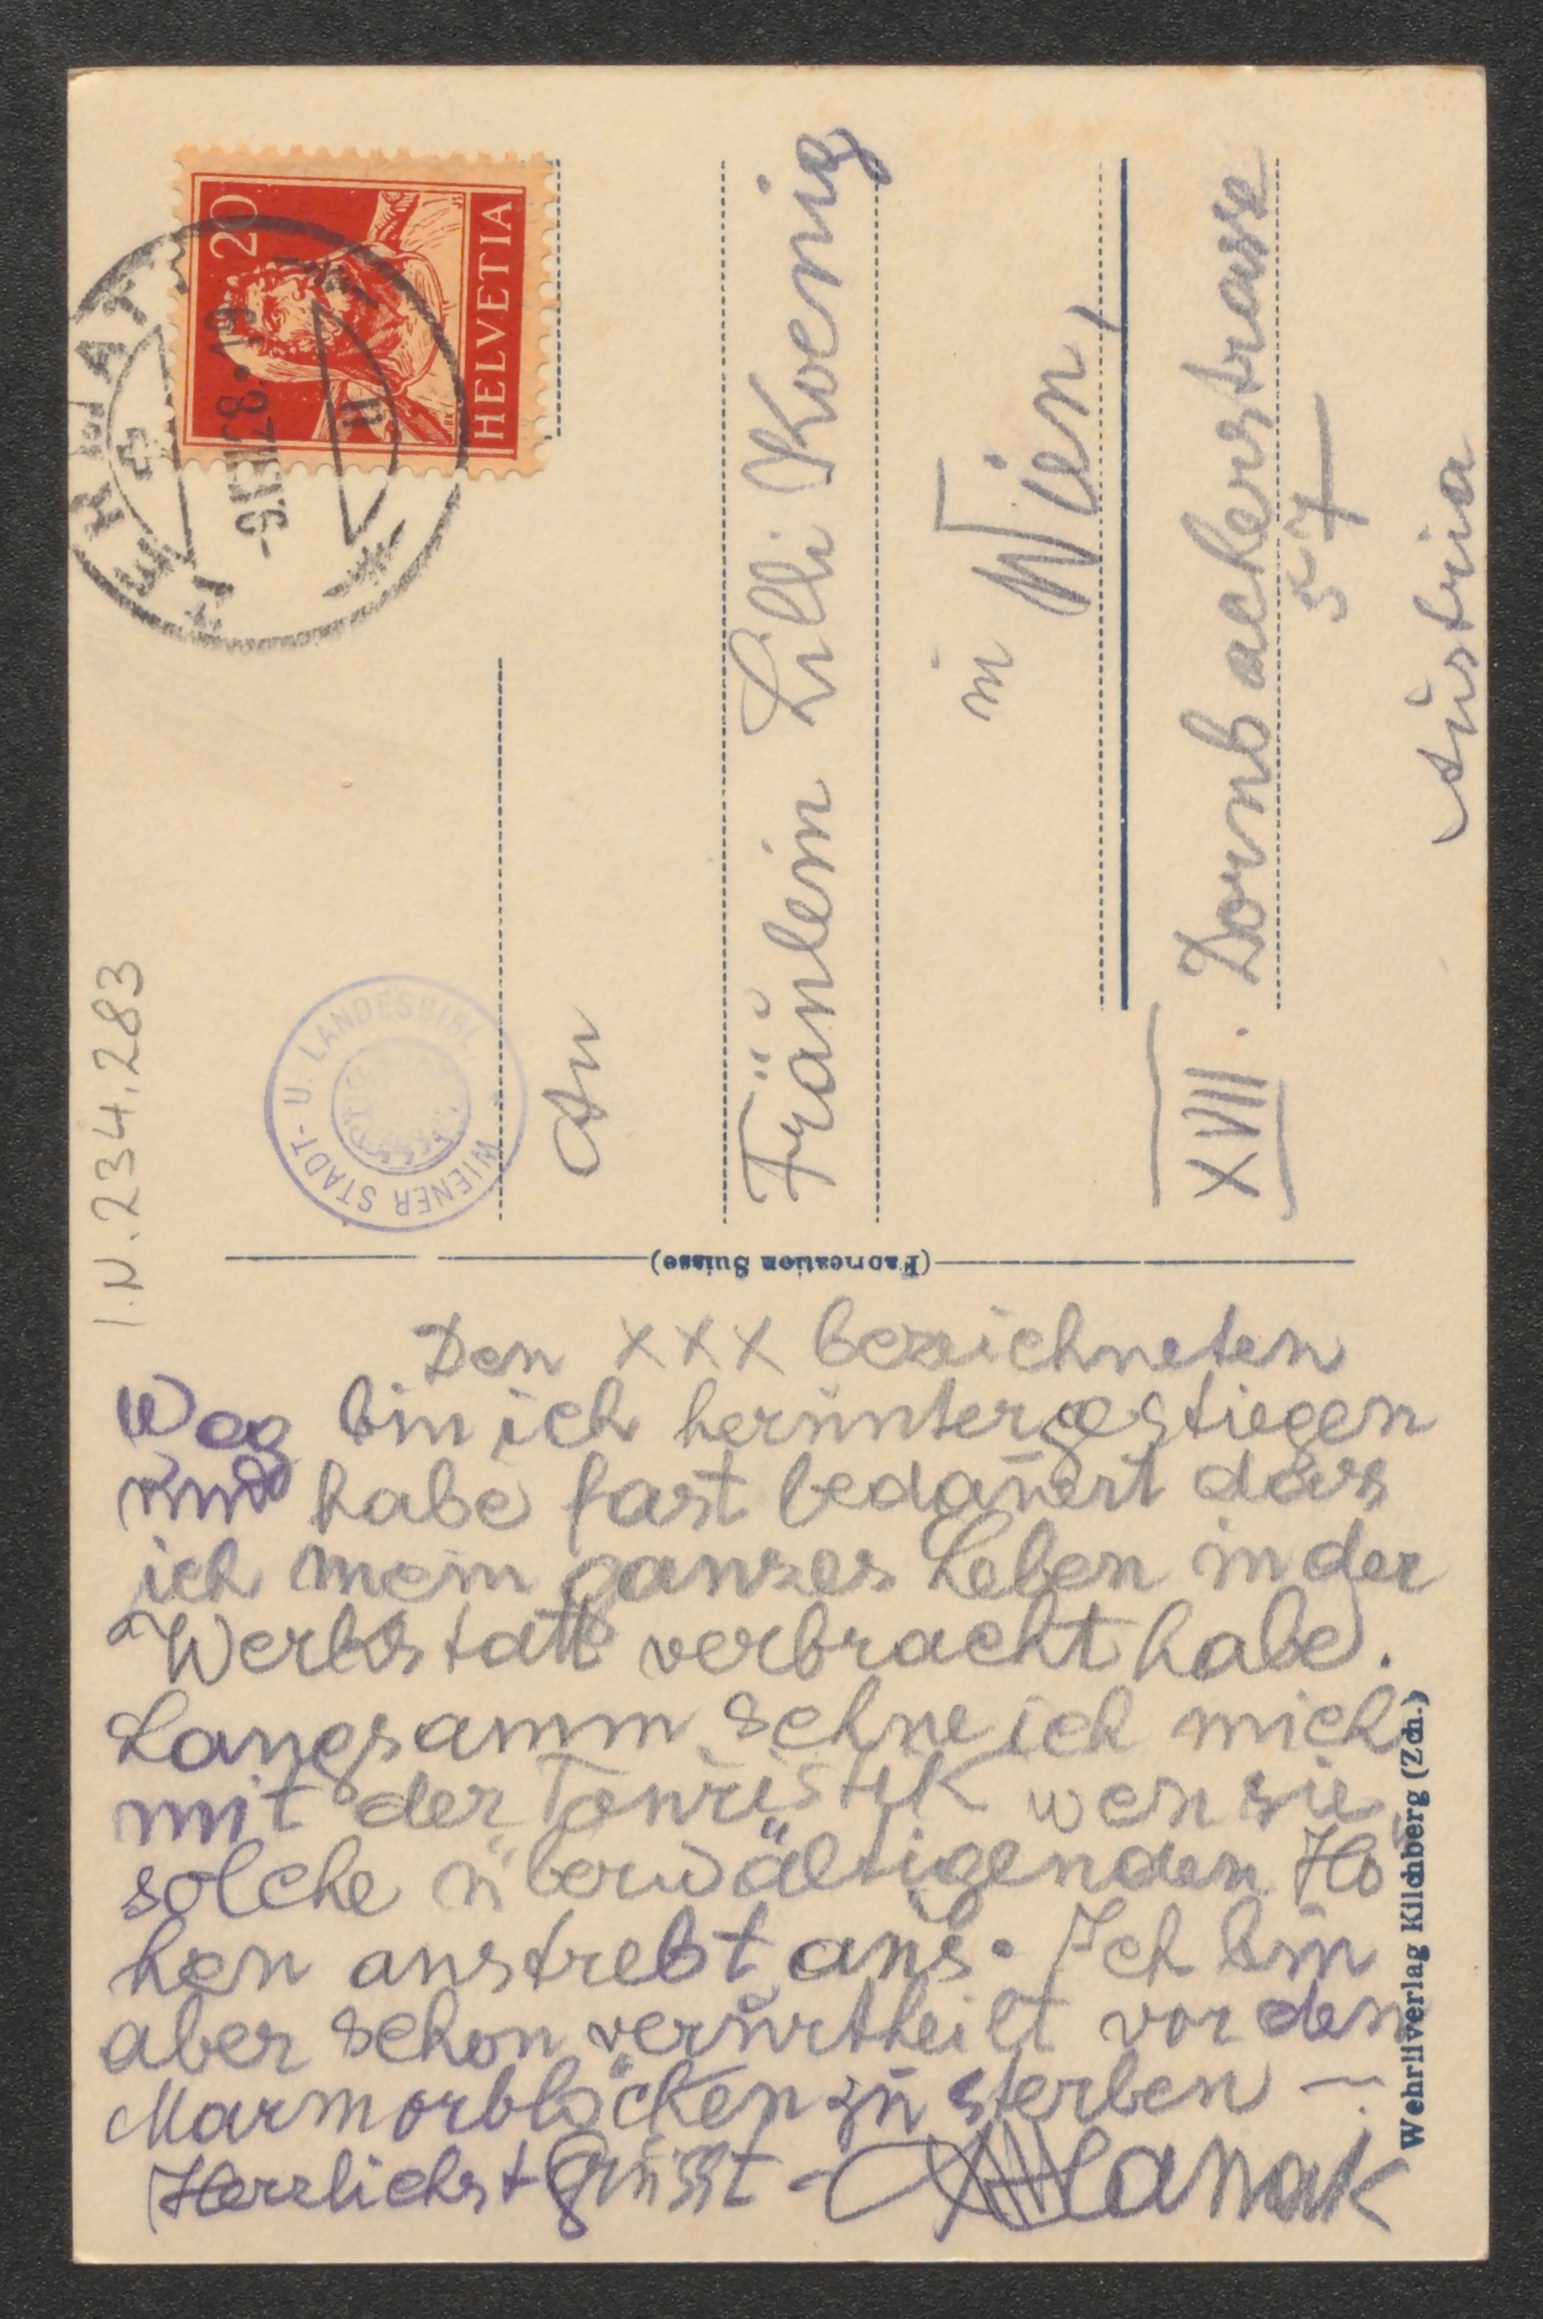 HELVETIA
20
ZERMATT
-9.IX.28.-19
I.N. 234.283
WIENER STADT- U. LANDESBIBL.
An
Fräulein Lilli Koenig
in Wien,
XVII. Dornbacherstrasse
57
Austria
(Fabrication Suisse)
Den XXX bezeichneten
Weg bin ich heruntergestiegen
und habe fast bedauert dass
ich mein ganzes Leben in der
Werkstatt verbracht habe.
Langsamm sehne ich mich
mit der Touristik wen sie
solche überwältigenden Hö
hen anstrebt aus. Ich bin
aber schon verurtheilt vor den
Marmorblöcken zu sterben —
Herzlichst Grüsst - AHanak
Wehrliverlag Kilchberg (Zch.)